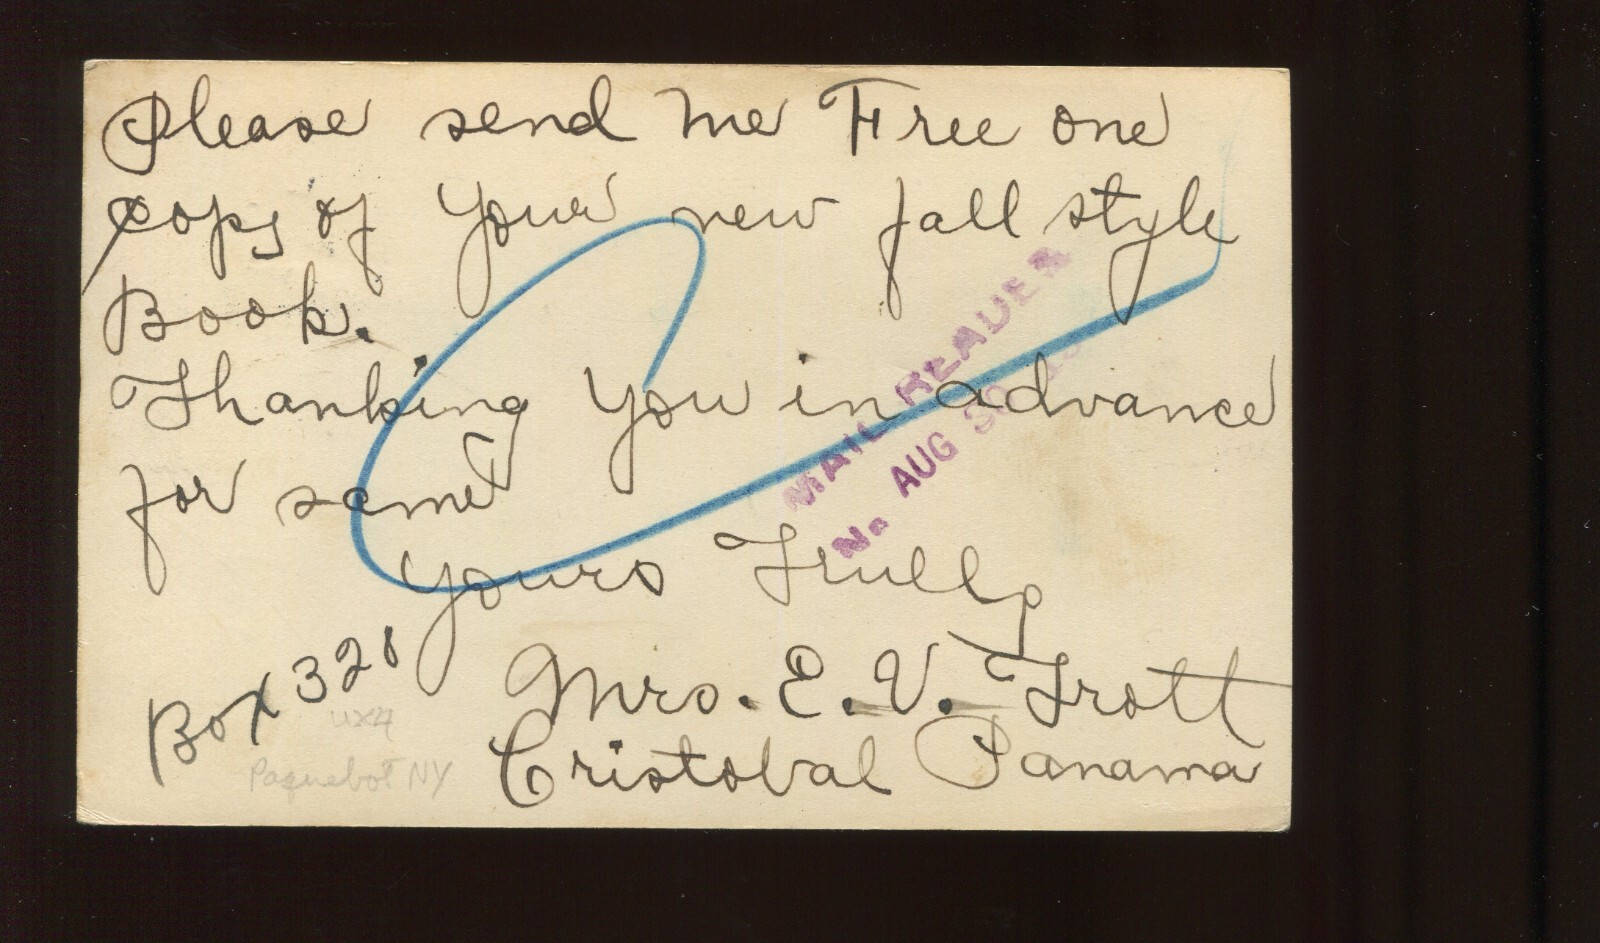 Please send me Free one
copy of your new fall style
Book.
Thanking you in advance
for same
Yours Trully
Mrs. E. V. Trott
Cristobal Panama
Box 328
UX4
Paquebot NY
MAIL READER
No. AUG 30